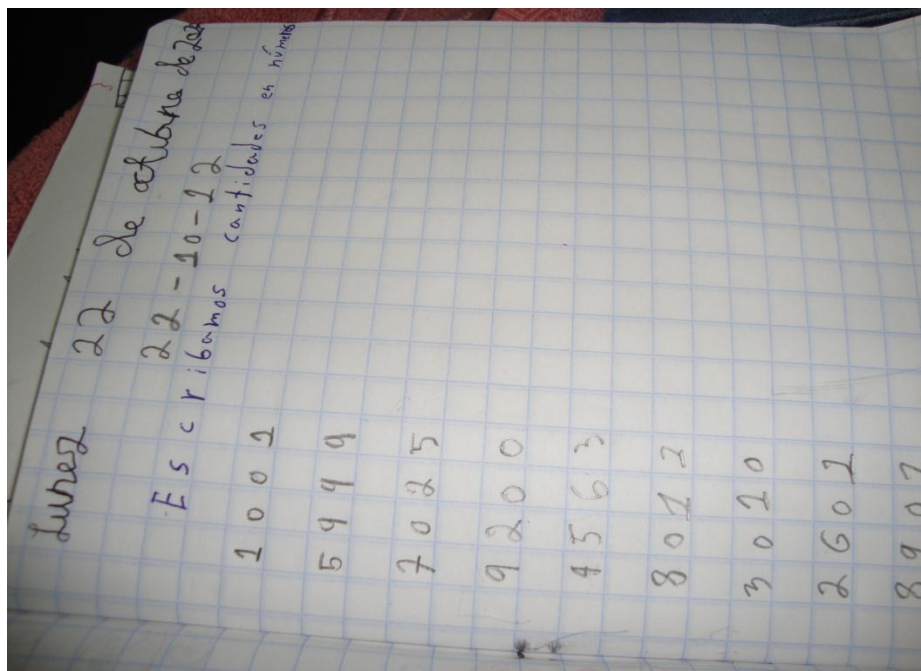 Lunez 22 de octubre de
22-10-12
Escribamos cantidades en números
1001
5999
7025
9200
4563
8012
3010
2601